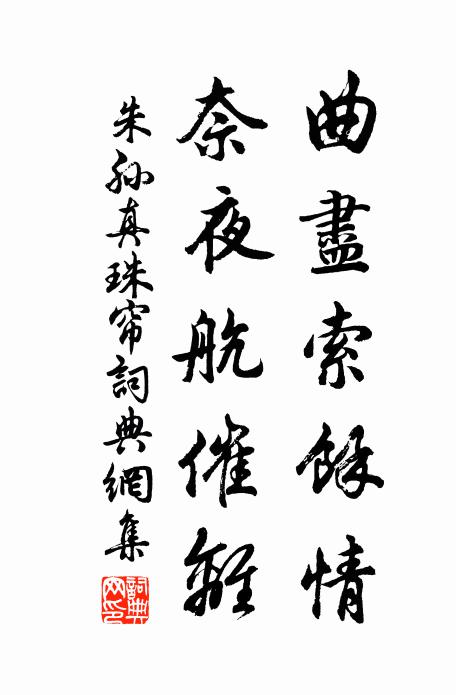 曲盡索餘情
奈夜航催離
朱孫真珠帘詞典網集
詞典網印